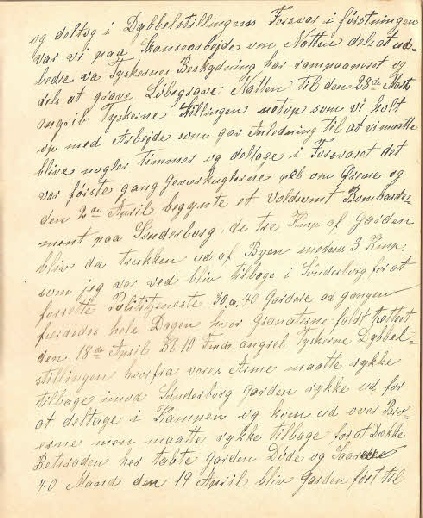 og deltog i Dybbelstillingens Forsvar i förstningen
var vi paa Skansearbejder om Natten dels at ud-
bedre va Tyskernes Beskydning har ramponeret og
dels at grave Löbegrave Natten til den 28de Marts
angreb Tyskerne Stillingen netop som vi holt
op med Arbejde som gav Anledning til at vi maatte
blive nogle Timmer og deltage i Forsvaret det
var förste gang Geværkuglerne peb om Ørerne og
den 2den April begynte et voldsomt Bombarde-
ment paa Sönderborg de tre Kmp af Garden
blive da trukken ud af Byen medens 3 Kmp:
som jeg var ved blive tilbage i Sönderborg for at
forrette Politiljeneste 30 a 40 Gardere ad gangen
hele Dagen hvor Granaterne faldt tættest
den 18de April Kl 10 Form angreb Tyskerne Dybbel-
stillingen hvorfra vores Arme maatte rykke
tilbage mod Sönderborg garden rykke ud for
at deltage i Kampen og kom ud over Bro-
erne men maatte rykke tilbage for at Dække
Retræden her tabte garden Döde og Saarede
40 Mand den 19 April blev Garden fört til